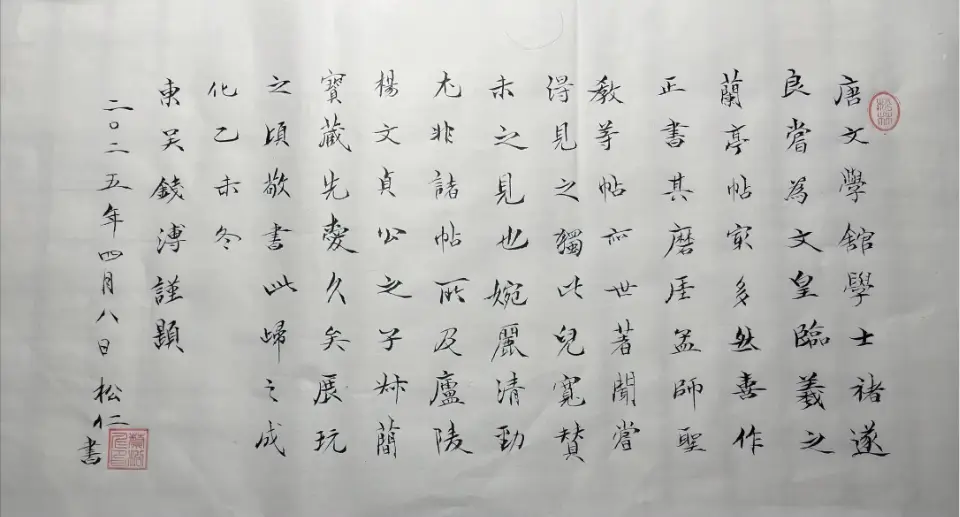 唐文學館學士褚遂
良嘗為文皇臨羲之
蘭亭帖寔多然喜作
正書其磨崖孟師聖
教等帖亦世著聞嘗
得見之獨此兒寬賛
未之見也婉麗清勁
尤非諸帖所及廬陵
楊文貞公之子叔簡
寳藏先愛久矣展玩
之頃敬書此歸之成
化乙未冬
東吴錢溥謹題
二〇二五年四月八日 松仁書